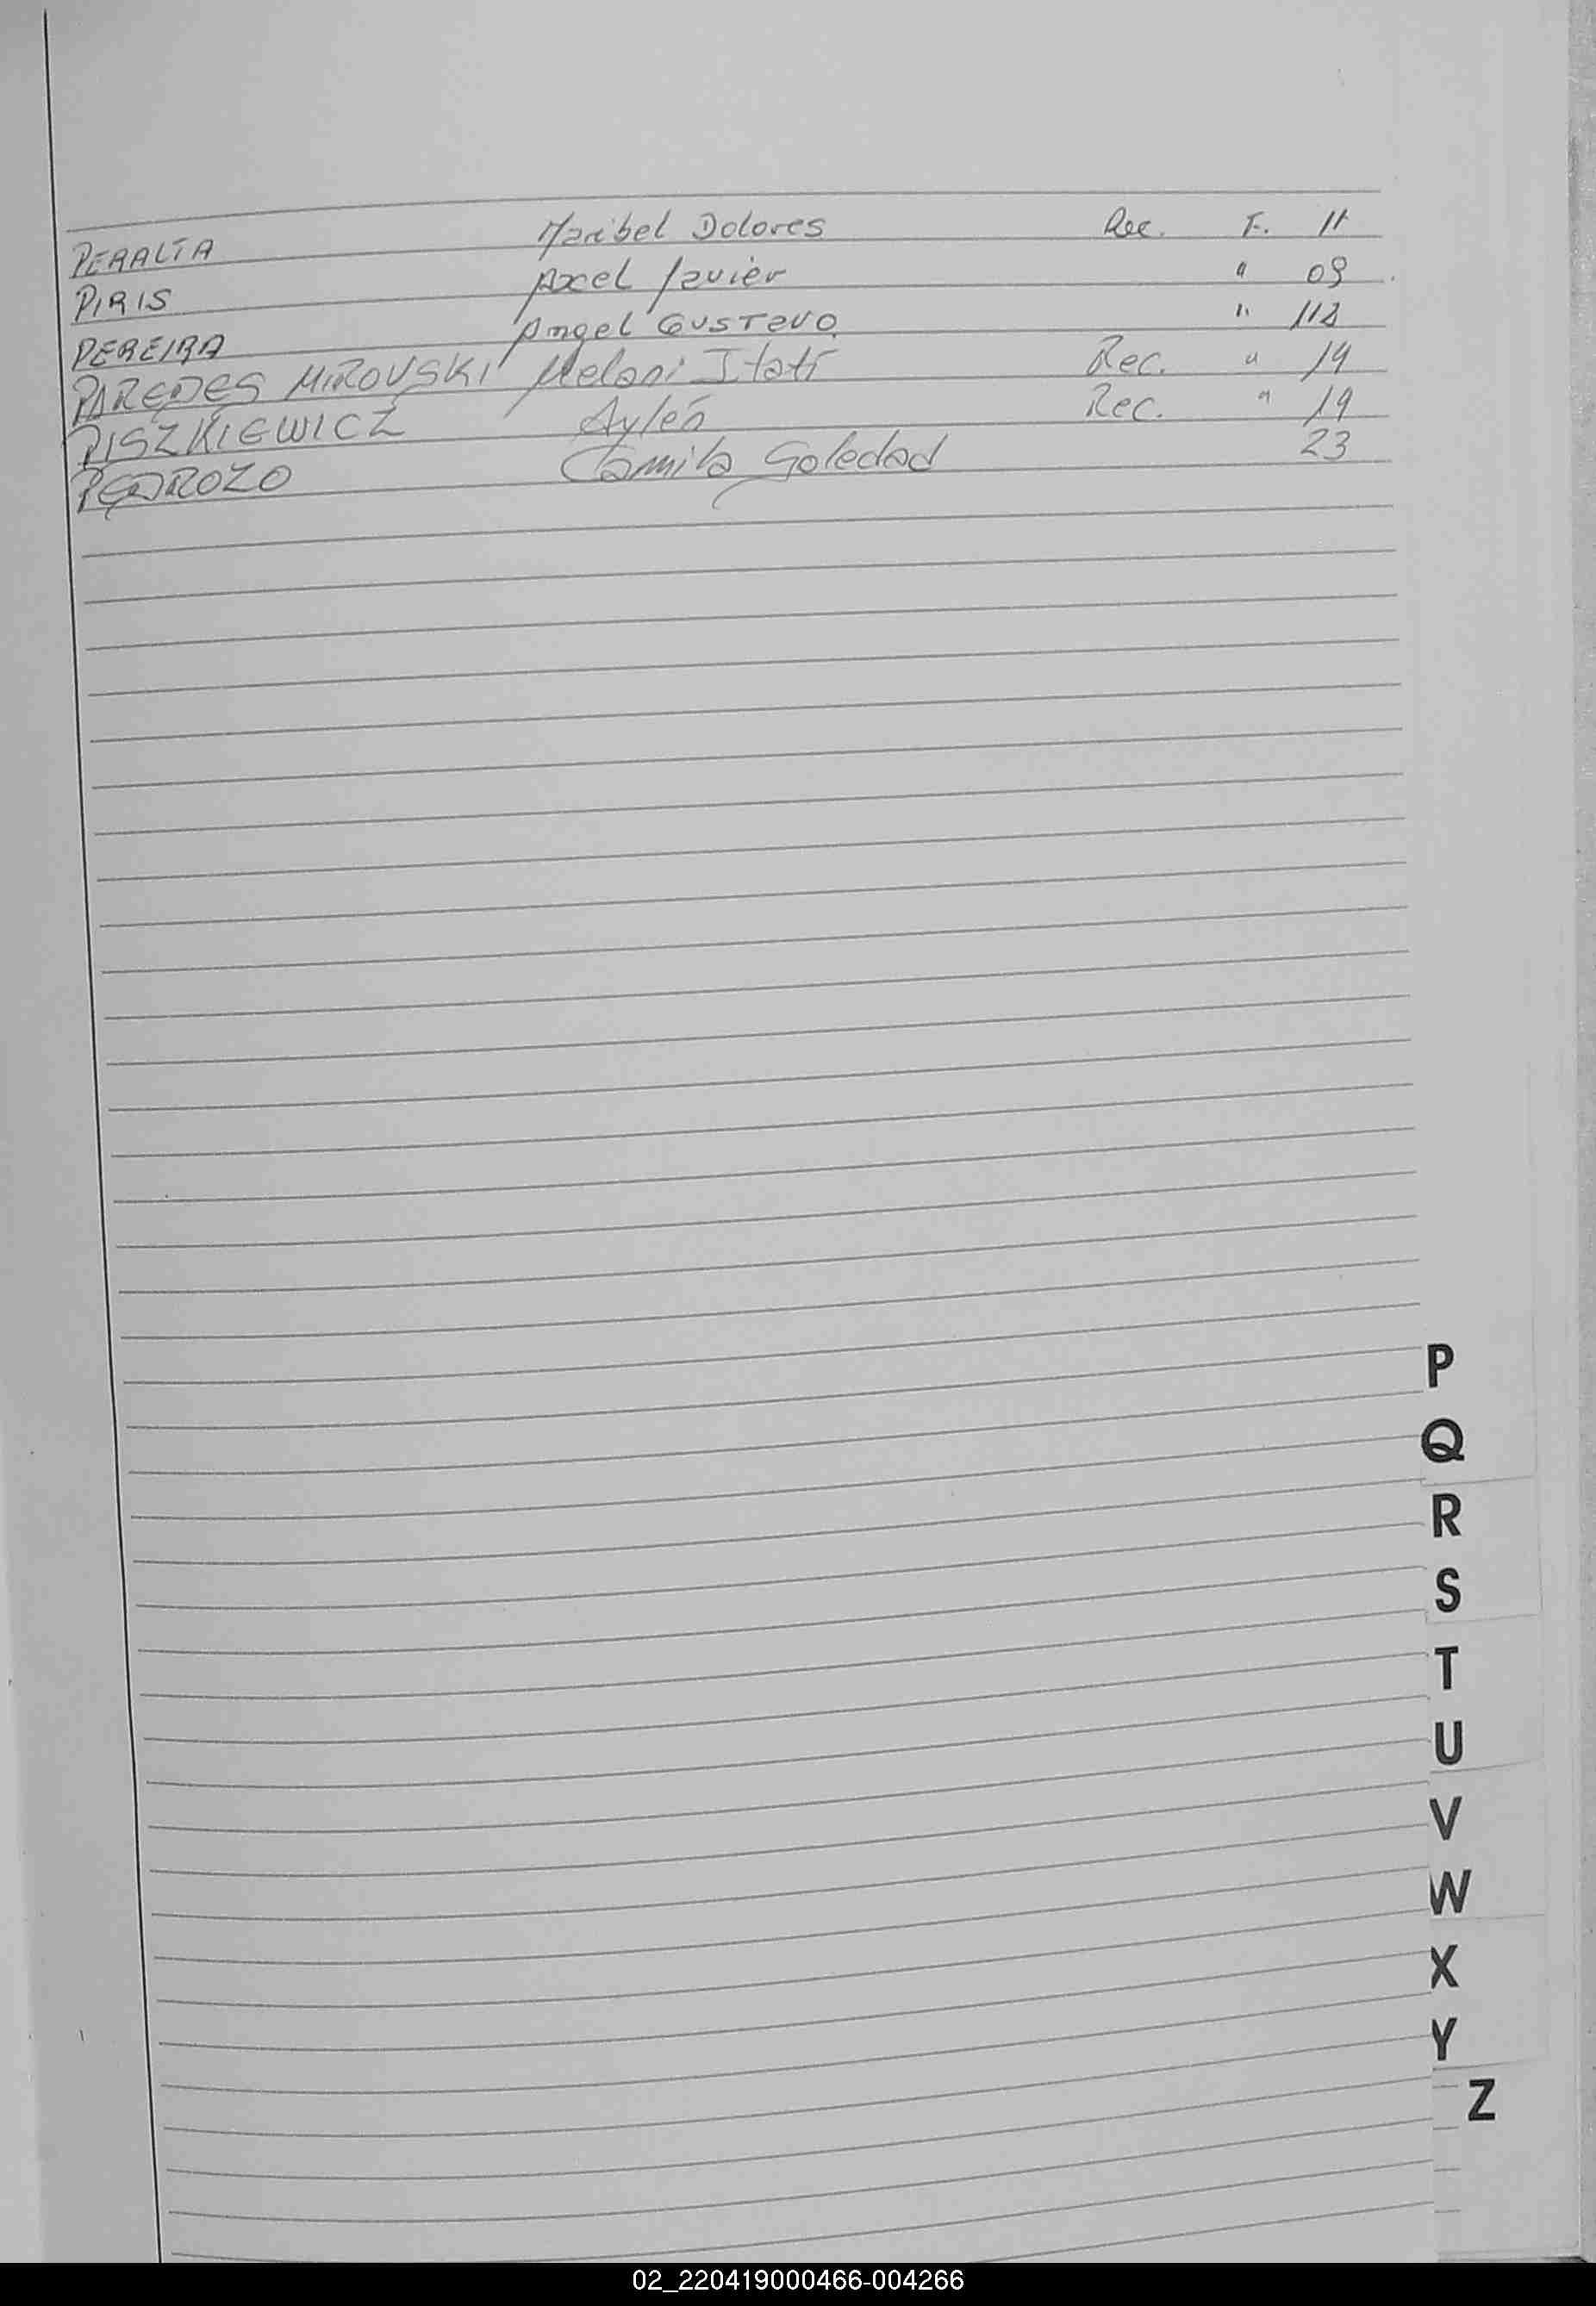 PERALTA Maribel Dolores Rec. F. 11
PIRIS Axel Javier " 09
PEREIRA Angel Gustavo "
PAREDES MIROVSKI Melani Itatí Rec. " 19
PISZKIEWICZ Aylén Rec. " 19
PEDROZO Camila Soledad 23
P
Q
R
S
T
U
V
W
X
Y
Z
02_220419000466-004266